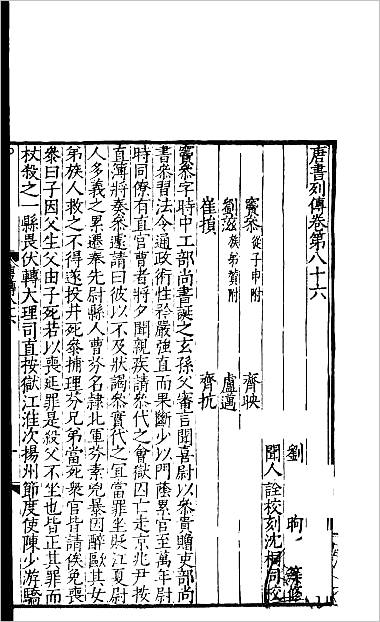 唐書列傳卷第八十六
劉昫等修
聞人詮校刻沈桐同校
竇參從子申附 齊映
劉滋族弟贊附 盧邁
崔損 齊抗
竇參字時中工部尚書誕之玄孫父審言聞喜尉以參貴贈吏部尚
書參習法令通政術性矜嚴強直而果斷少以門蔭累官至萬年尉
時同僚有直官曹者將夕聞親疾請參代之會獄囚亡走京兆尹按
直簿將奏參遽請曰彼以不及狀謁參實代之宜當罪坐貶江夏尉
人多義之累遷奉先尉縣人曹芬名隸北軍芬素兇暴因醉毆其女
弟族人救之不得遂投井死參捕理芬兄弟當死眾官皆請俟免喪
參曰子因父生父由子死若以喪延罪是殺父不坐也皆正其罪而
杖殺之一縣畏伏轉大理司直按獄江淮次揚州節度使陳少游驕